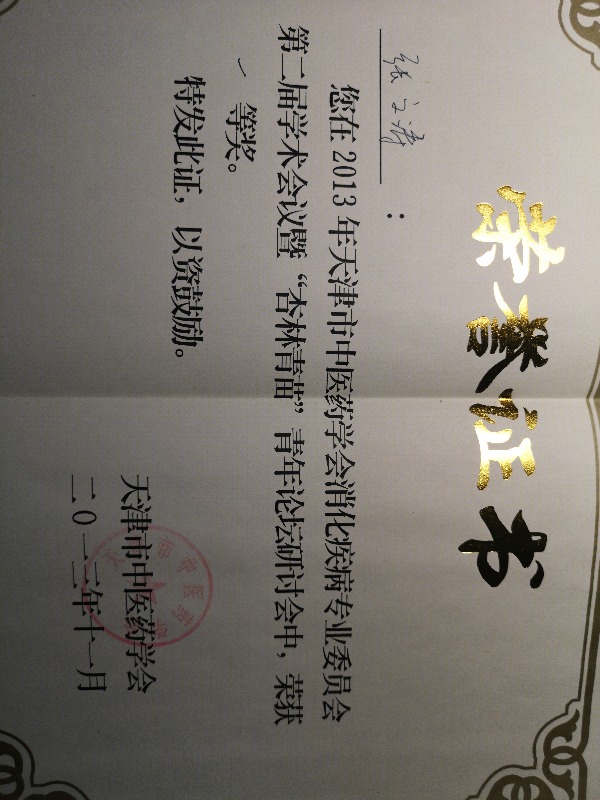 荣誉证书
张文涛：
您在2013年天津市中医药学会消化疾病专业委员会
第二届学术会议暨“杏林青苗”青年论坛研讨会中，荣获
一等奖。
特发此证，以资鼓励。
天津市中医药学会
二〇一三年十一月